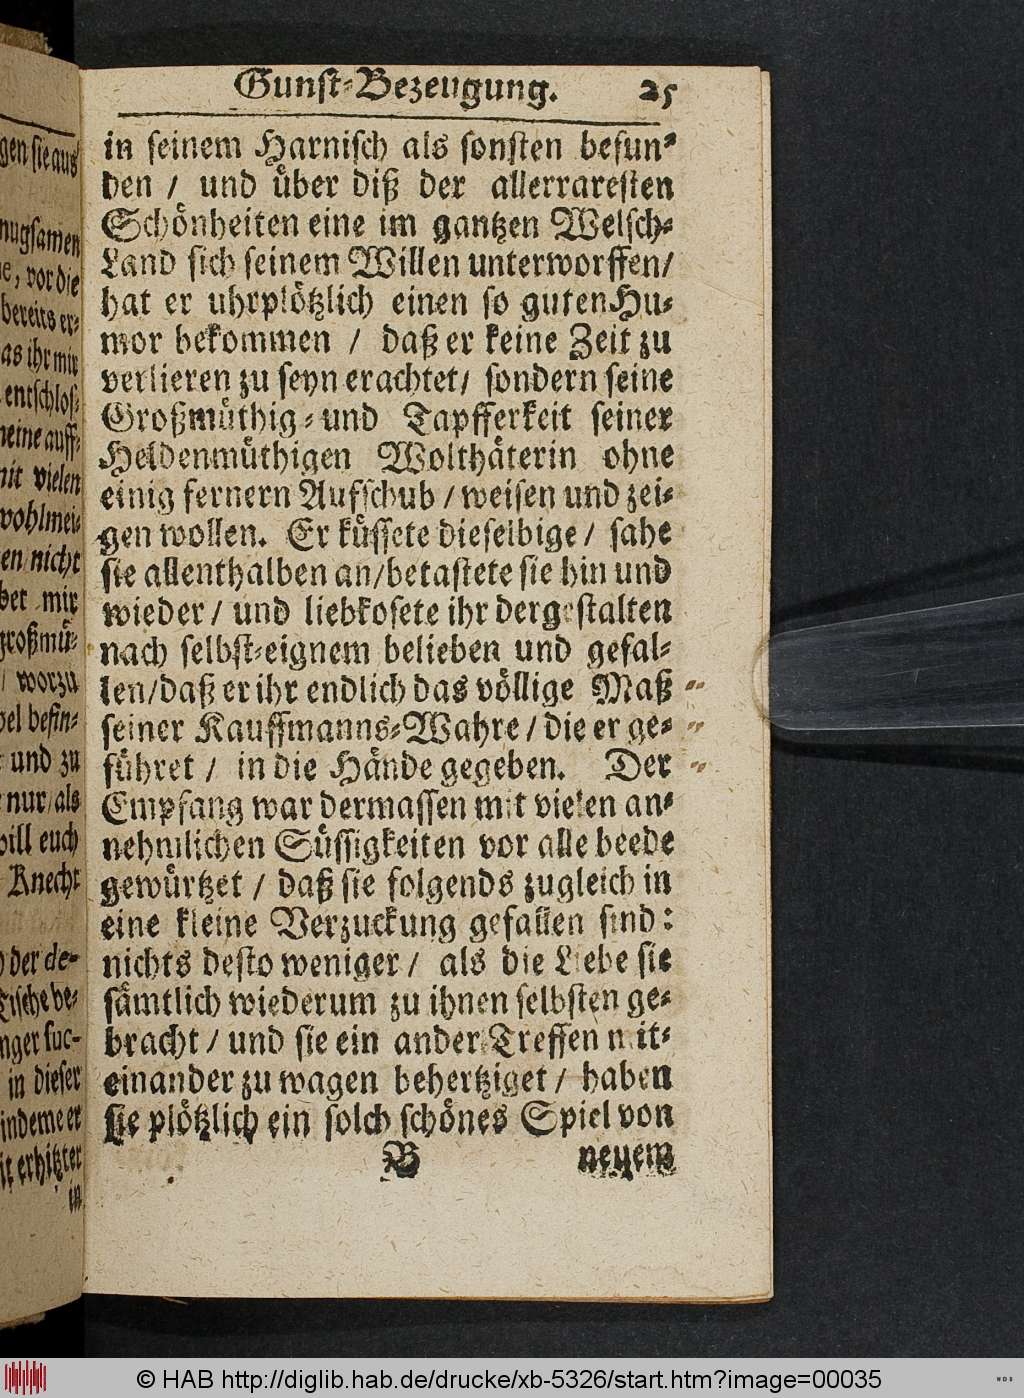 gen sie aus
nugsamen
e, vor die
bereits er-
as ihr mir
entschlos-
neine auff-
nit vielen
wohlmei-
en/nicht
bet mir
großmü-
/ worzu
bel befin-
und zu
nur/als
will euch
Knecht
der de-
Tische be-
nger suc-
in dieser
indeme er
it erhitzter
in
Gunst-Bezeugung. 25
in seinem Harnisch als sonsten befun-
den / und über diß der allerraresten
Schönheiten eine im gantzen Welsch-
Land sich seinem Willen unterworffen/
hat er uhrplötzlich einen so guten Hu-
mor bekommen / daß er keine Zeit zu
verlieren zu seyn erachtet/ sondern seine
Großmüthig- und Tapfferkeit seiner
Heldenmüthigen Wolthäterin ohne
einig fernern Aufschub / weisen und zei-
gen wollen. Er küssete dieselbige / sahe
sie allenthalben an/betastete sie hin und
wieder / und liebkosete ihr dergestalten
nach selbst-eignem belieben und gefal-
len/daß er ihr endlich das völlige Maß
seiner Kauffmanns-Wahre / die er ge-
führet / in die Hände gegeben. Der
Empfang war dermassen mit vielen an-
nehmlichen Süssigkeiten vor alle beede
gewürtzet / daß sie folgends zugleich in
eine kleine Verzuckung gefallen sind:
nichts desto weniger / als die Liebe sie
sämtlich wiederum zu ihnen selbsten ge-
bracht / und sie ein ander Treffen mit-
einander zu wagen behertziget / haben
sie plötzlich ein solch schönes Spiel von
B neuem
© HAB http://diglib.hab.de/drucke/xb-5326/start.htm?image=00035